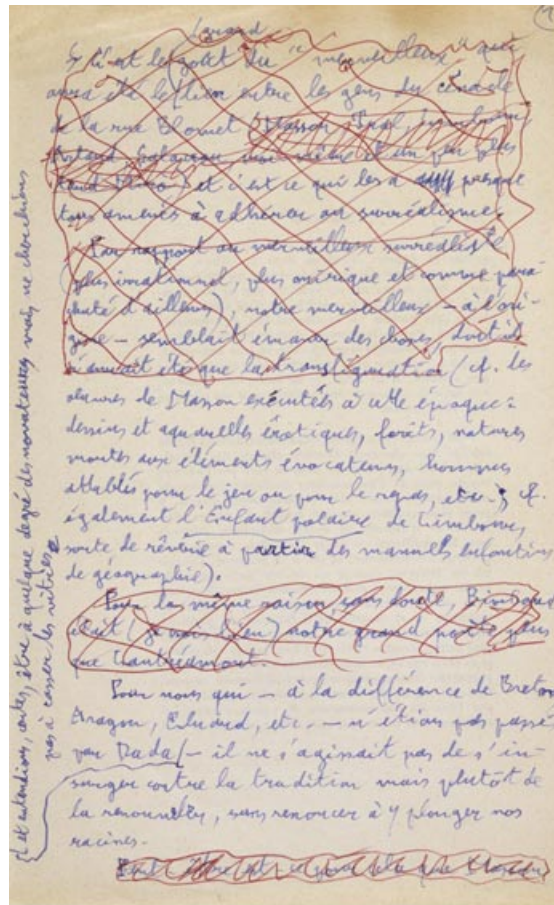 ↳ C'est le goût du "merveilleux" qui
aura été le lien entre les gens du cénacle
de la rue Blomet (Masson, Tual, Limbour,
Artaud, Salacrou, moi-même et un peu plus
tard Miró) et c'est ce qui les a presque
tous amenés à adhérer au surréalisme.
Par rapport au merveilleux surréaliste
(plus irrationnel, plus onirique et comme para-
chuté d'ailleurs), notre merveilleux — à l'ori-
gine — semblait émaner des choses, dont il
n'aurait été que la transfiguration (cf. les
œuvres de Masson exécutées à cette époque :
dessins et aquarelles érotiques, forêts, natures
mortes aux éléments évocateurs, hommes
attablés pour le jeu ou pour le repas, etc. ; cf.
également l'Enfant polaire de Limbour,
sorte de rêverie à partir des manuels enfantins
de géographie).
Pour la même raison, sans doute, Rimbaud
était (je crois bien) notre grand poète plus
que Lautréamont.
Pour nous qui — à la différence de Breton
Aragon, Eluard, etc. — n'étions pas passés
par Dada — il ne s'agissait pas de s'in-
surger contre la tradition mais plutôt de
la renouveler, sans renoncer à y plonger nos
racines.
et entendions, certes, être à quelque degré des novateurs mais ne cherchions
pas à casser les vitres